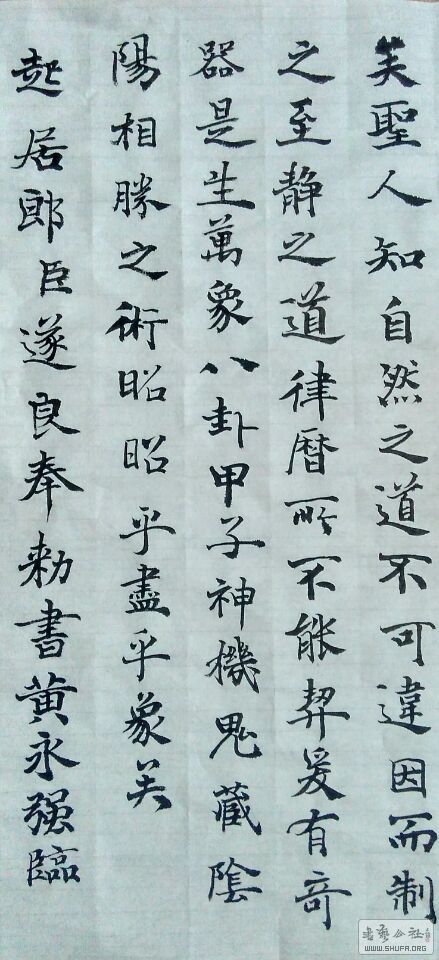 矣聖人知自然之道不可違因而制
之至静之道律曆所不能契爰有奇
器是生萬象八卦甲子神機鬼藏陰
陽相勝之術昭昭乎盡乎象矣
起居郎臣遂良奉勅書黄永强臨
書藝公社
WWW.SHUFA.ORG